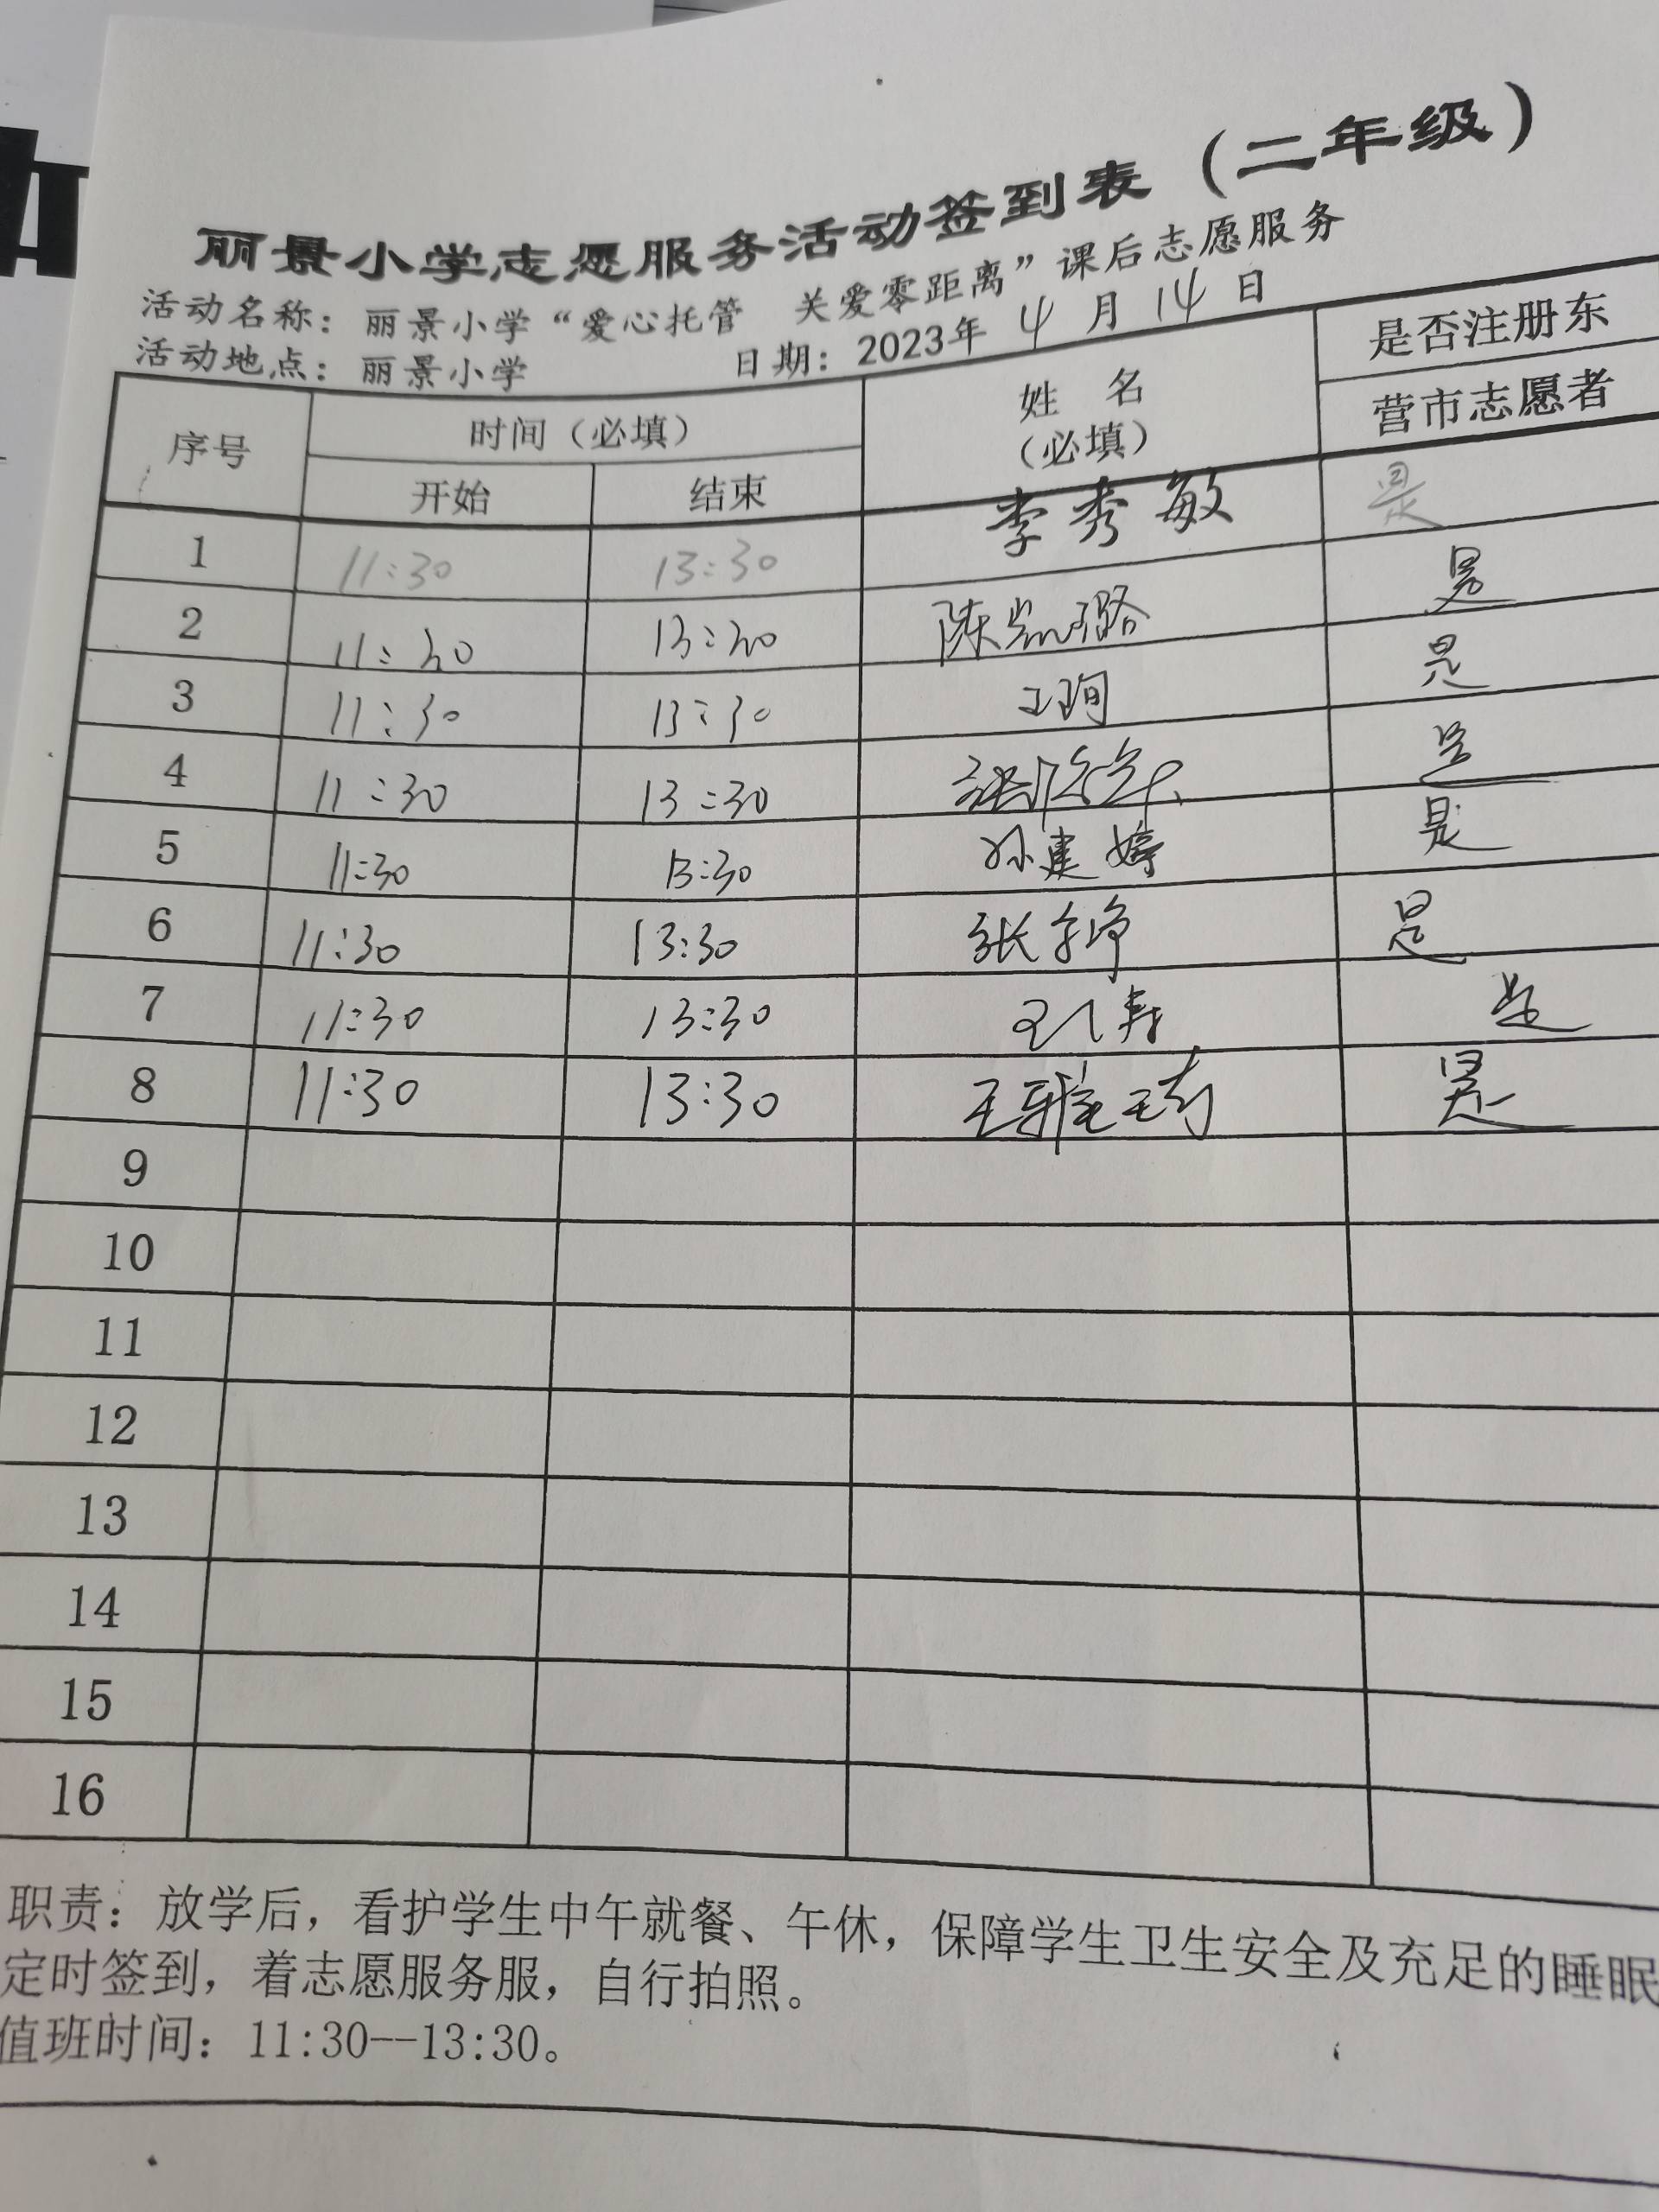 丽景小学志愿服务活动签到表（二年级）
活动名称：丽景小学“爱心托管 关爱零距离”课后志愿服务
活动地点：丽景小学 日期：2023年 4 月 14 日
序号 时间（必填） 姓 名 是否注册东
开始 结束 （必填） 营市志愿者
1 11:30 13:30 李秀敏 是
2 11:30 13:30 陈凯璐 是
3 11:30 13:30 王珣 是
4 11:30 13:30 是
5 11:30 13:30 孙建婷 是
6 11:30 13:30 张 是
7 11:30 13:30 是
8 11:30 13:30 王雅琦 是
9
10
11
12
13
14
15
16
职责：放学后，看护学生中午就餐、午休，保障学生卫生安全及充足的睡眠
定时签到，着志愿服务服，自行拍照。
值班时间：11:30--13:30。